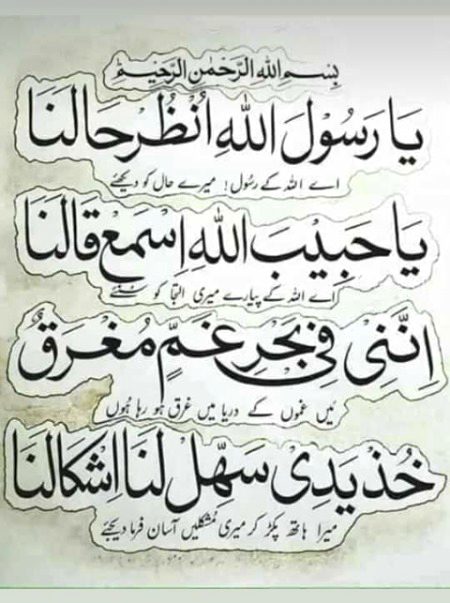 بِسْمِ اللهِ الرَّحْمٰنِ الرَّحِيْمِ
يَا رَسُوْلَ اللهِ اُنْظُرْ حَالَنَا
اے اللہ کے رسُول! میرے حال کو دیکھئے
يَا حَبِيْبَ اللهِ اِسْمَعْ قَالَنَا
اے اللہ کے پیارے میری التجا کو سُنئے
اِنَّنِىْ فِىْ بَحْرِ غَمٍّ مُغْرَقٌ
میں غموں کے دریا میں غرق ہو رہا ہُوں
خُذْ يَدِىْ سَهِّلْ لَنَا اِشْكَالَنَا
میرا ہاتھ پکڑ کر میری مُشکلیں آسان فرما دیجئے